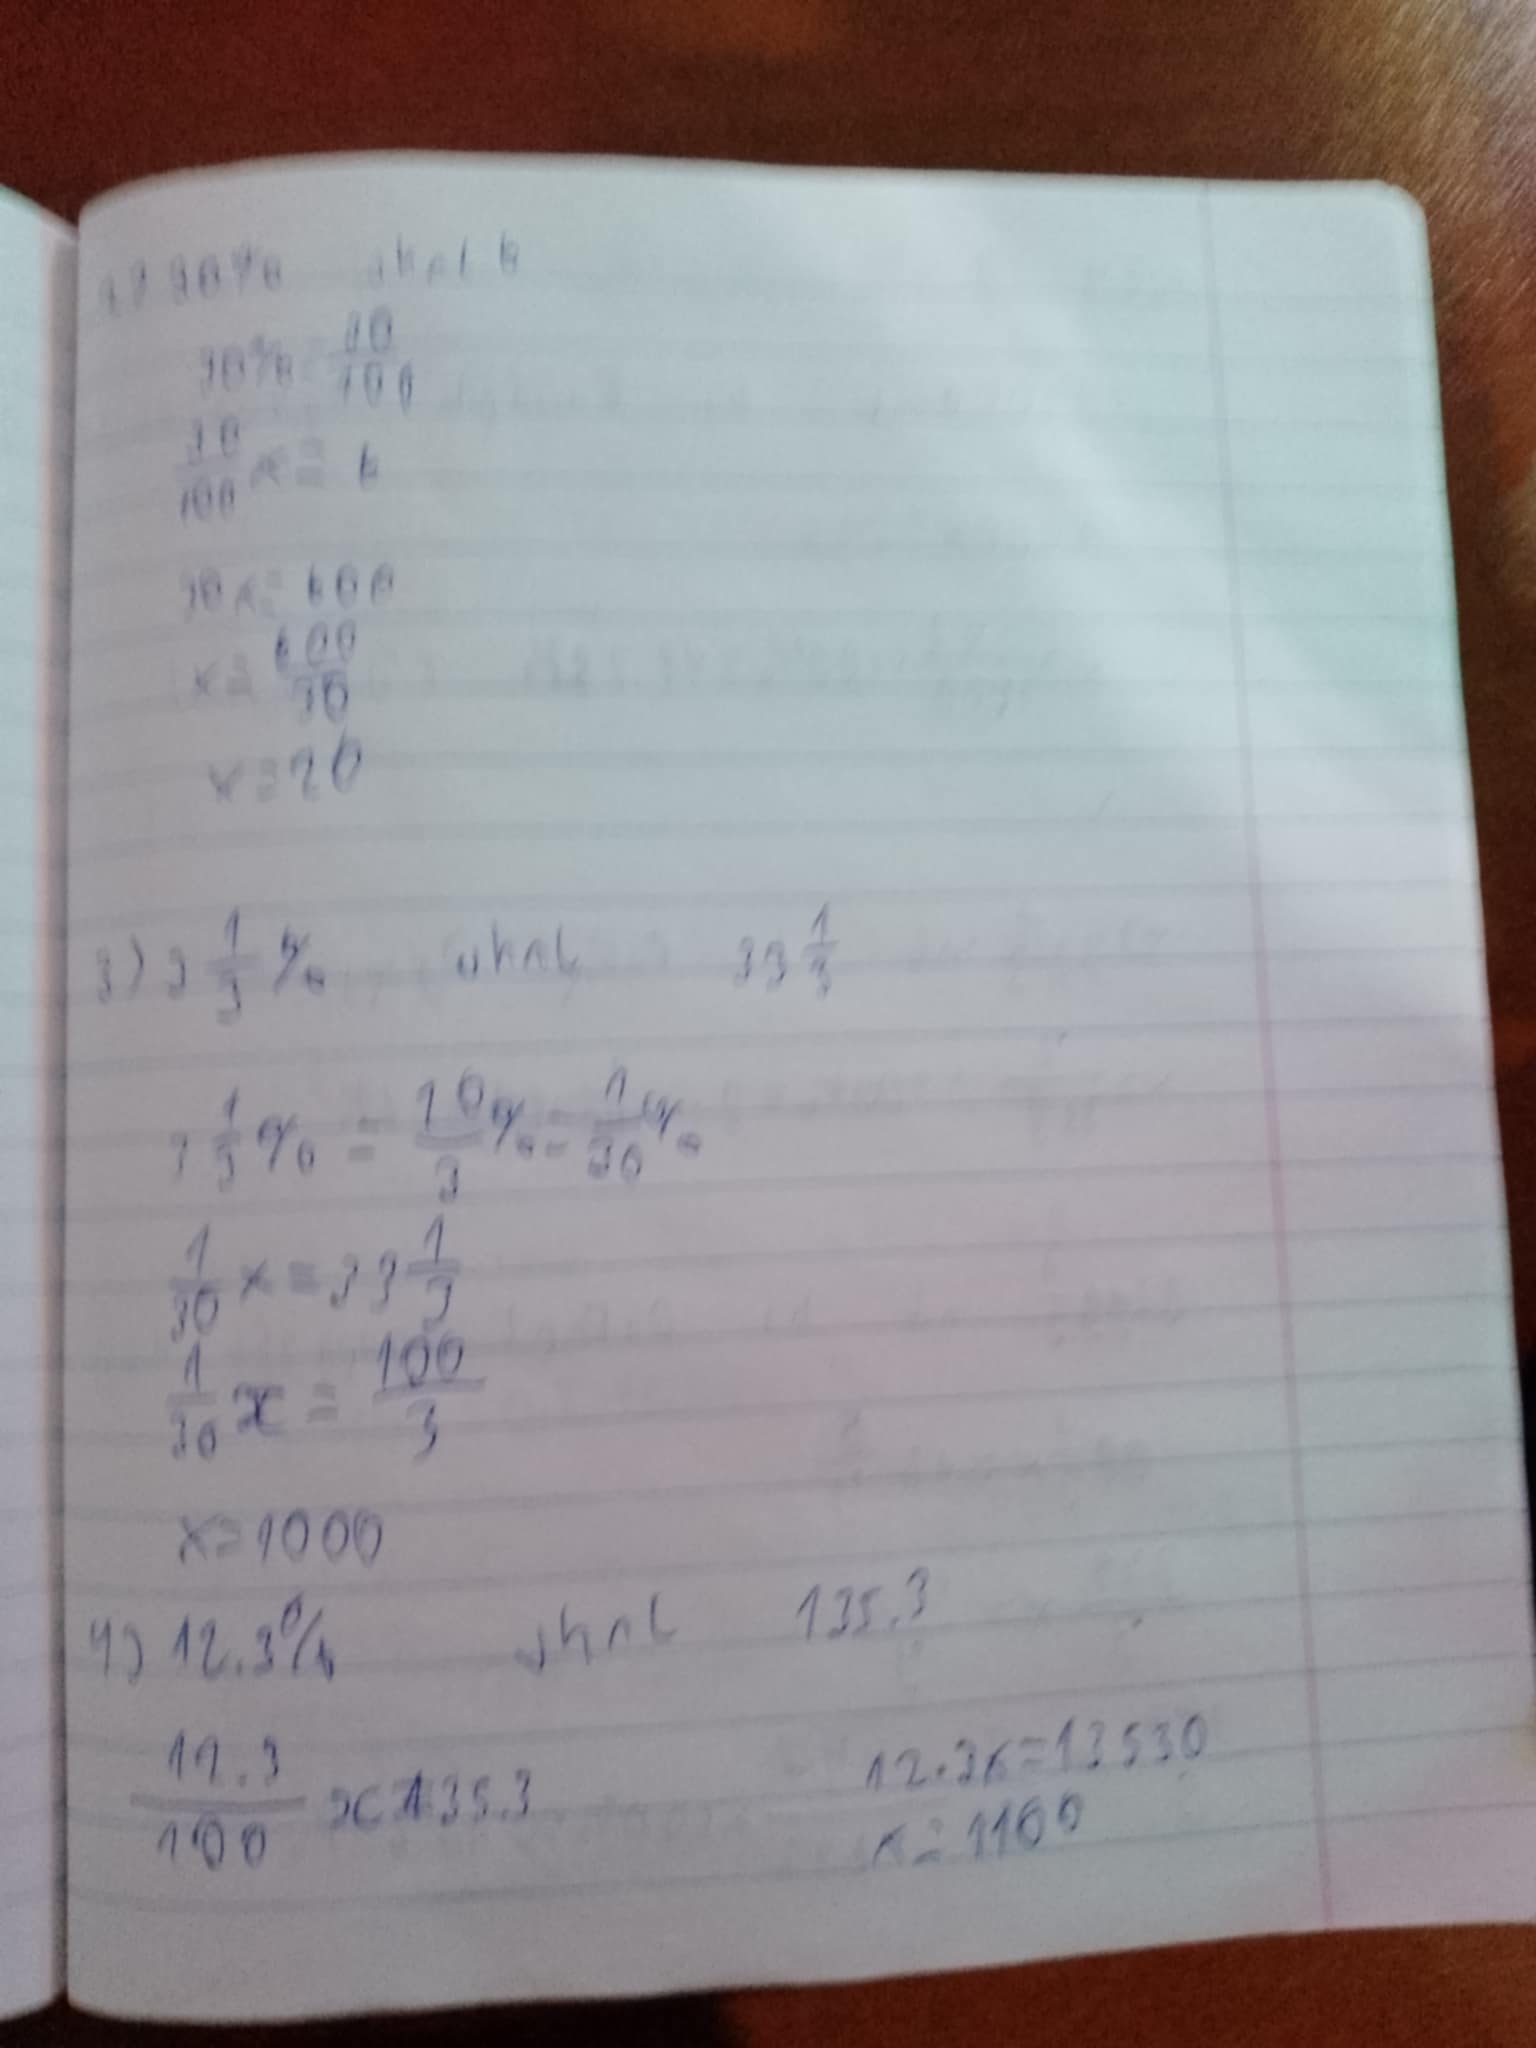 2) 30% екпі 6
30% = 30/100
30/100 x = 6
30x = 600
x = 600/30
x = 20
3) 3 1/3 % 33 1/3
3 1/3 % = 10/3 % = 1/30 %
1/30 x = 33 1/3
1/30 x = 100/3
x = 1000
4) 12.3% 135.3
12.3/100 x = 135.3
12.3x = 13530
x = 1100